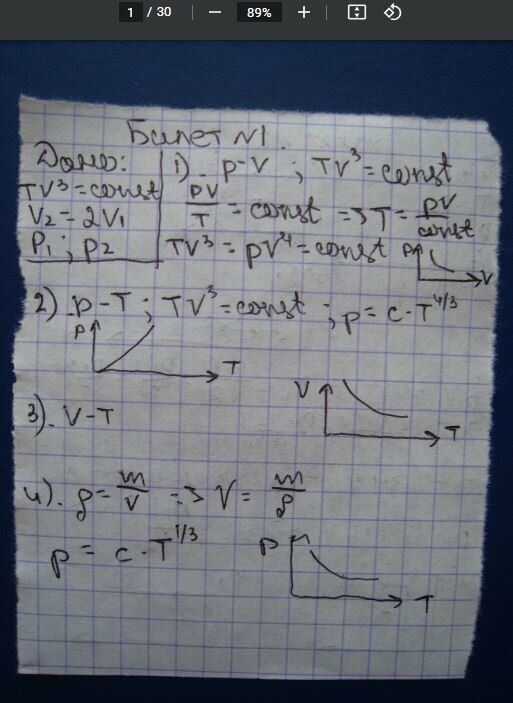 1 / 30 — 89% +
Билет №1.
Дано:
TV³ = const
V₂ = 2V₁
P₁ ; P₂
1). P-V ; TV³ = const
PV/T = const => T = PV/const
TV³ = pV⁴ = const
P
V
2) p-T ; TV³ = const ; p = c·T^4/3
P
T
3). V-T
V
T
4). ρ = m/V => V = m/ρ
ρ = c·T^1/3
P
T